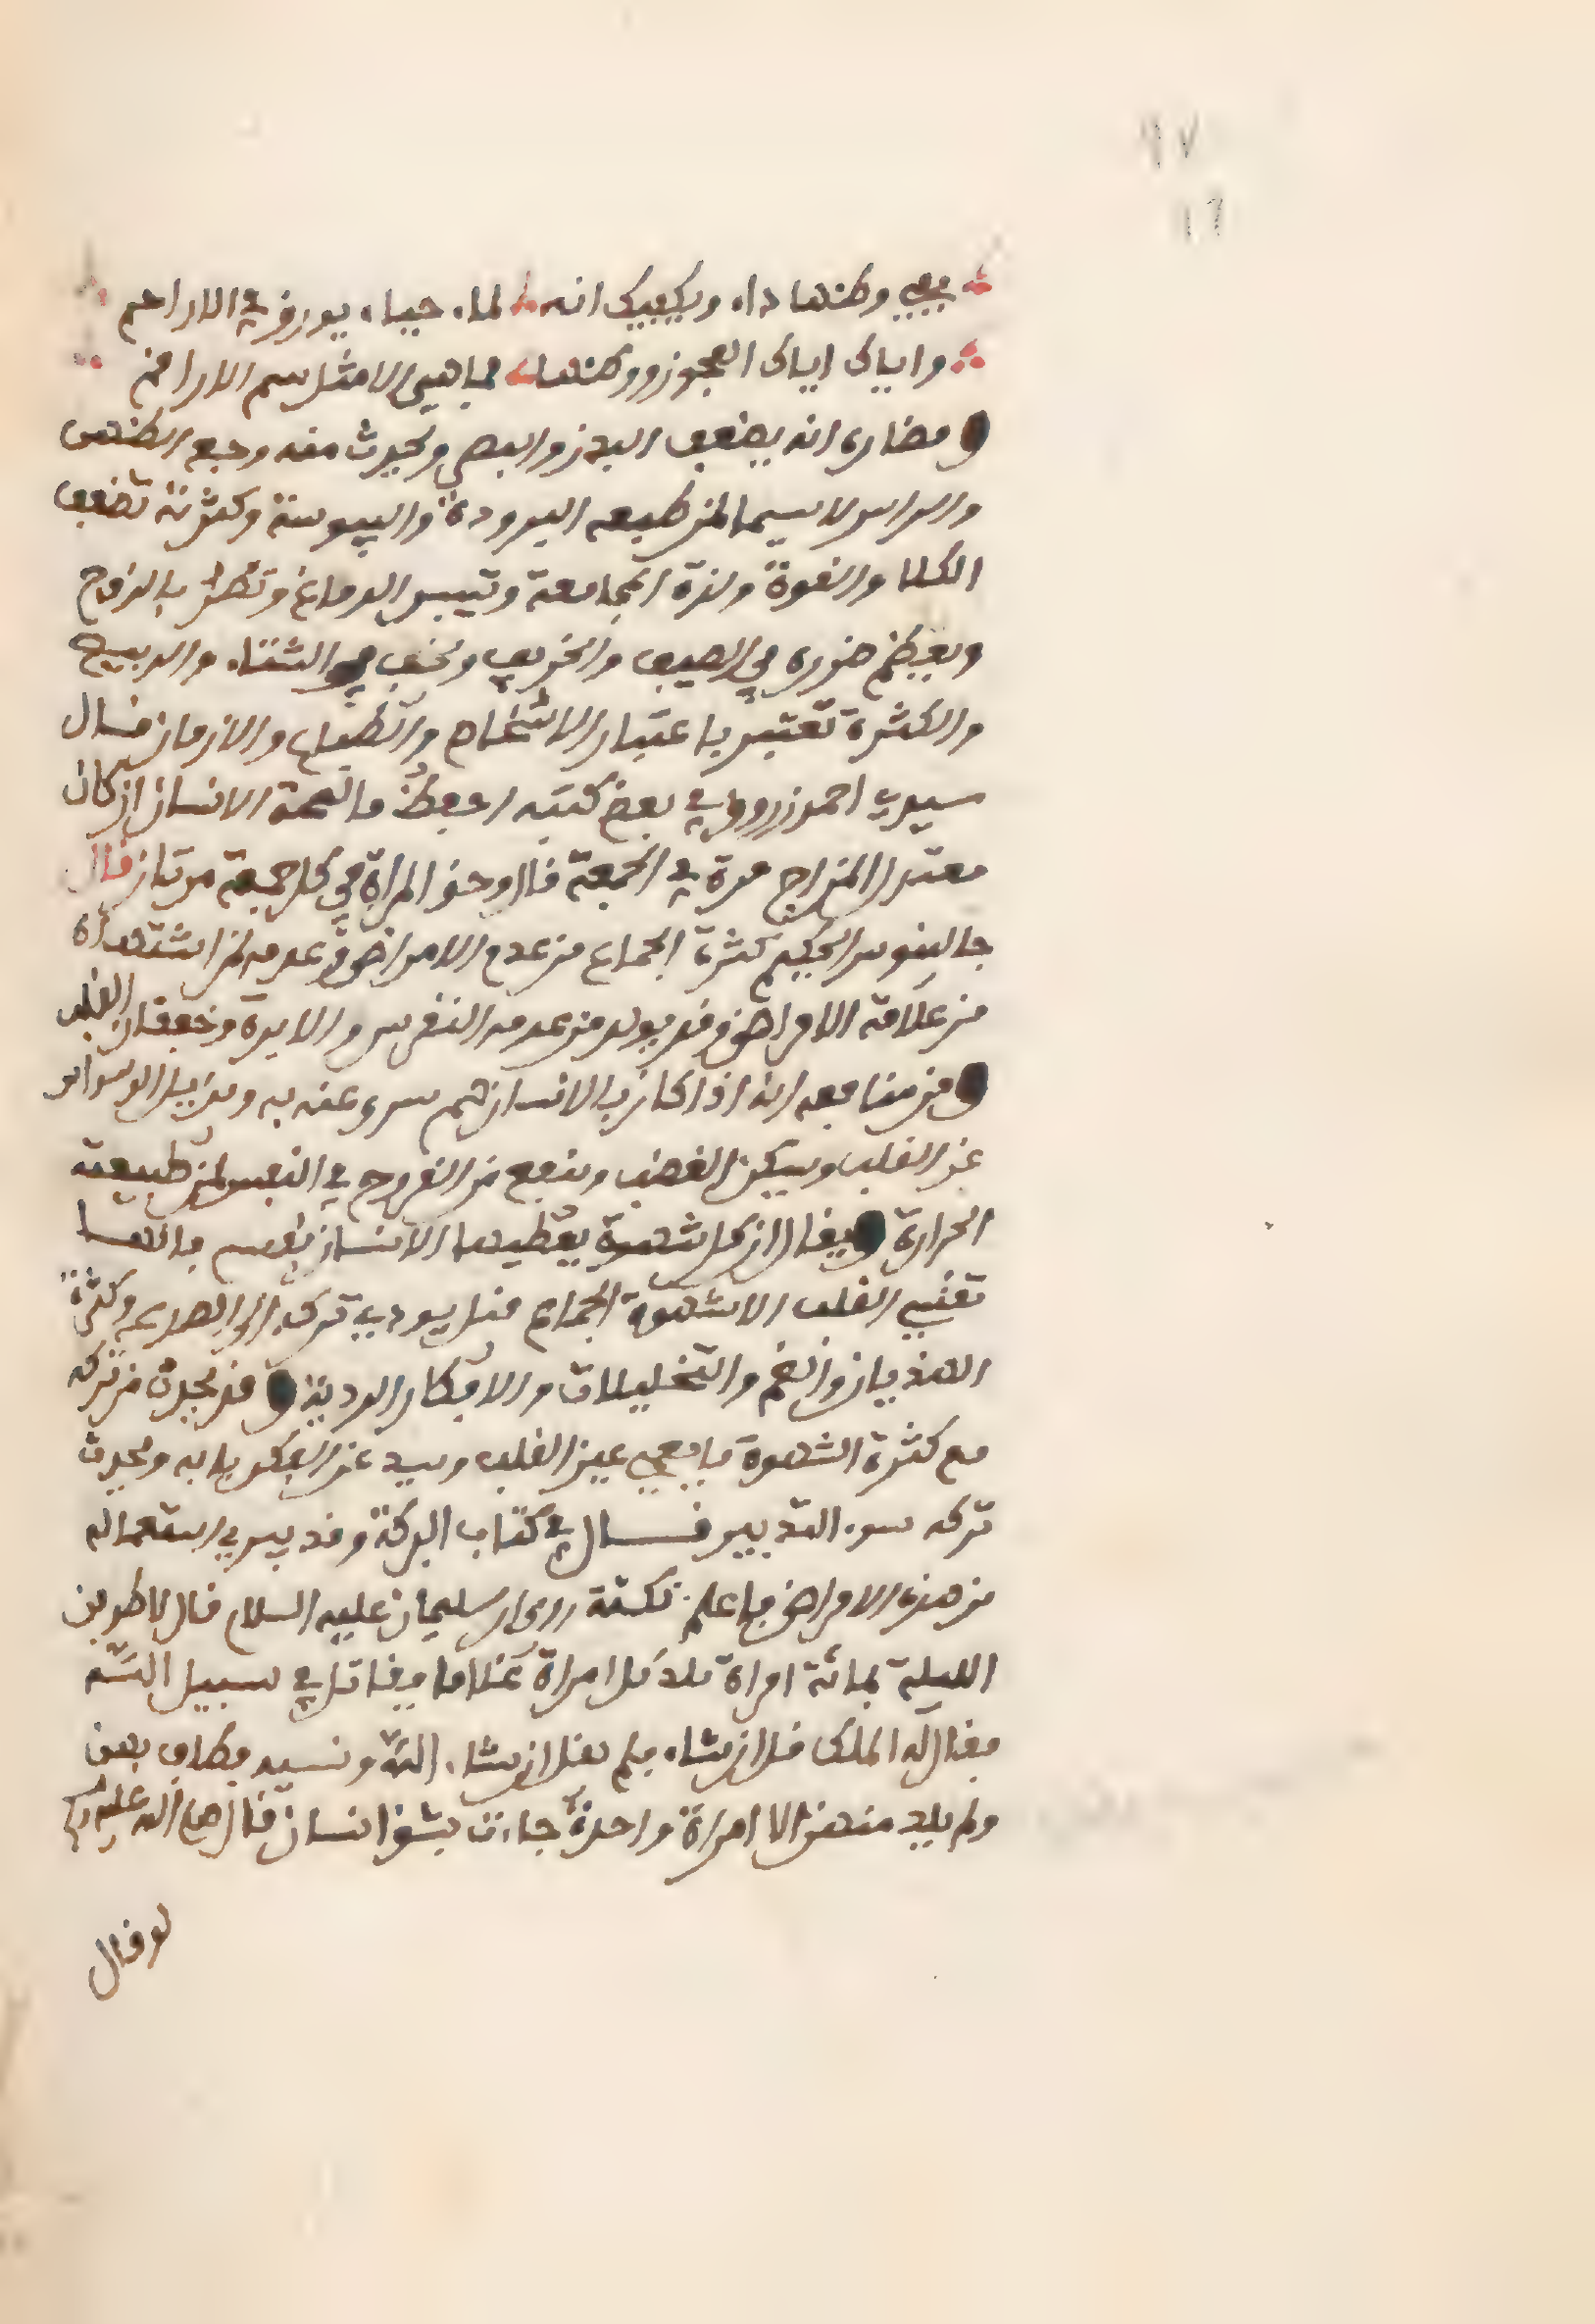 ٩٧
١٦
ففي وطئها داء ويكفيك انه لماء حياء يورق في الاراحم
واياك اياك العجوز ووطئها فما هي الا مثل سم الاراقم
ومضاره انه يضعف البدن والبصر ويحدث منه وجع الظهر
والراس لاسيما لمن طبعه البرودة واليبوسة وكثرته تضعف
الكلا والقوة ولذة المجامعة وتيبس الدماغ وتضر بالزوج
ويعظم ضرره في الصيف والخريف ويخف في الشتاء والربيع
والكثرة تعتبر باعتبار الاشخاص والطباع والازمان قال
سيدي احمد زروق في بعض كتبه احفظ ما لصحة الانسان ان كان
معتدل المزاج مرة في الجمعة قالوا وحق المراة في كل جمعة مرتان قال
جالينوس الحكيم كثرة الجماع من عدم الامراض وعدمه لمن اشتهاه
من علامة الامراض وقد يولد من عدمه النقرس والابردة وخفقان القلب
ومن منافعه انه اذا كان بالانسان هم سري عنه به ويزيل الوسواس
عن القلب ويسكن الغضب وينفع من القروح في النفس لمن طبيعته
الحرارة ويقال ان كل شهوة يعطيها الانسان نفسه فانها
تقسي القلب الا شهوة الجماع قيل يودي تركه الى الصرع وكثرة
الهذيان والغم والتخليلات والافكار الردية وقد يحدث من تركه
مع كثرة الشهوة ما يعمي عين القلب ويسد عن الفكر بابه ويحدث
تركه سوء التدبير قال في كتاب البركة وقد يبري استعماله
من هذه الامراض فاعلم نكتة روى ان سليمان عليه السلام قال لاطوفن
الليلة بمائة امراة تلد كل امراة غلاما يقاتل في سبيل الله
فقال له الملك قل ان شاء فلم يقل ان شاء الله ونسي فطاف بهن
ولم يلد منهن الا امراة واحدة جاءت بشق انسان قال صلى الله عليه وسلم
لو قال